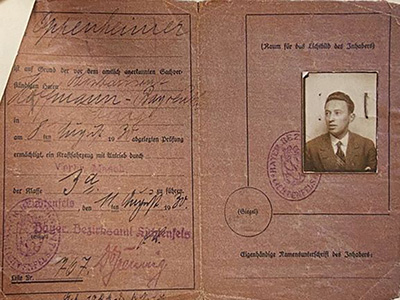 Oppenheimer
ist auf Grund der vor dem amtlich anerkannten Sachver-
ständigen Herrn
Hoffmann-Bayreuth
am 8. August 1930 abgelegten Prüfung
ermächtigt, ein Kraftfahrzeug mit Antrieb durch
der Klasse 3a zu führen.
Lichtenfels, den 11. August 1930.
Bayer. Bezirksamt Lichtenfels
Liste Nr. 767
(Raum für das Lichtbild des Inhabers)
(Siegel)
Eigenhändige Namensunterschrift des Inhabers: